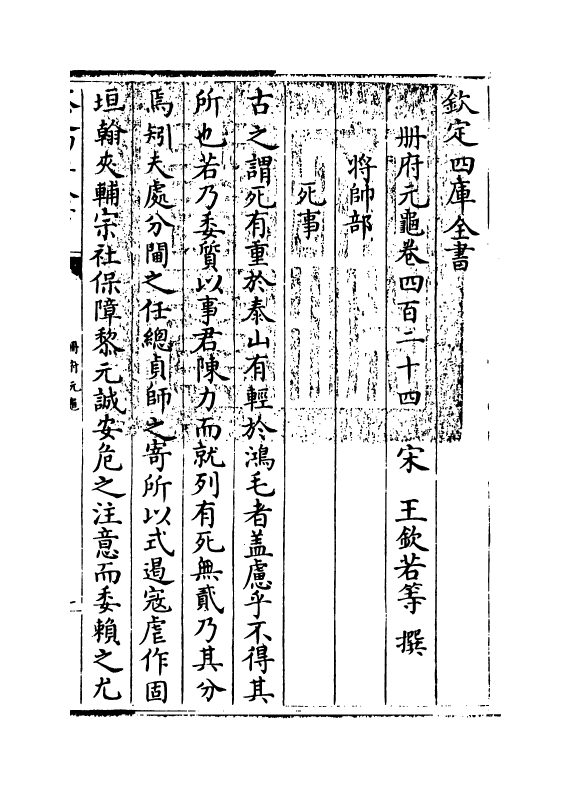 欽定四庫全書
册府元龜卷四百二十四　宋　王欽若等　撰
將帥部
死事
古之謂死有重於泰山有輕於鴻毛者盖慮乎不得其
所也若乃委質以事君陳力而就列有死無貳乃其分
焉矧夫處分閫之任總貞師之寄所以式遏寇虐作固
垣翰夾輔宗社保障黎元誠安危之注意而委賴之尤
册府元龜